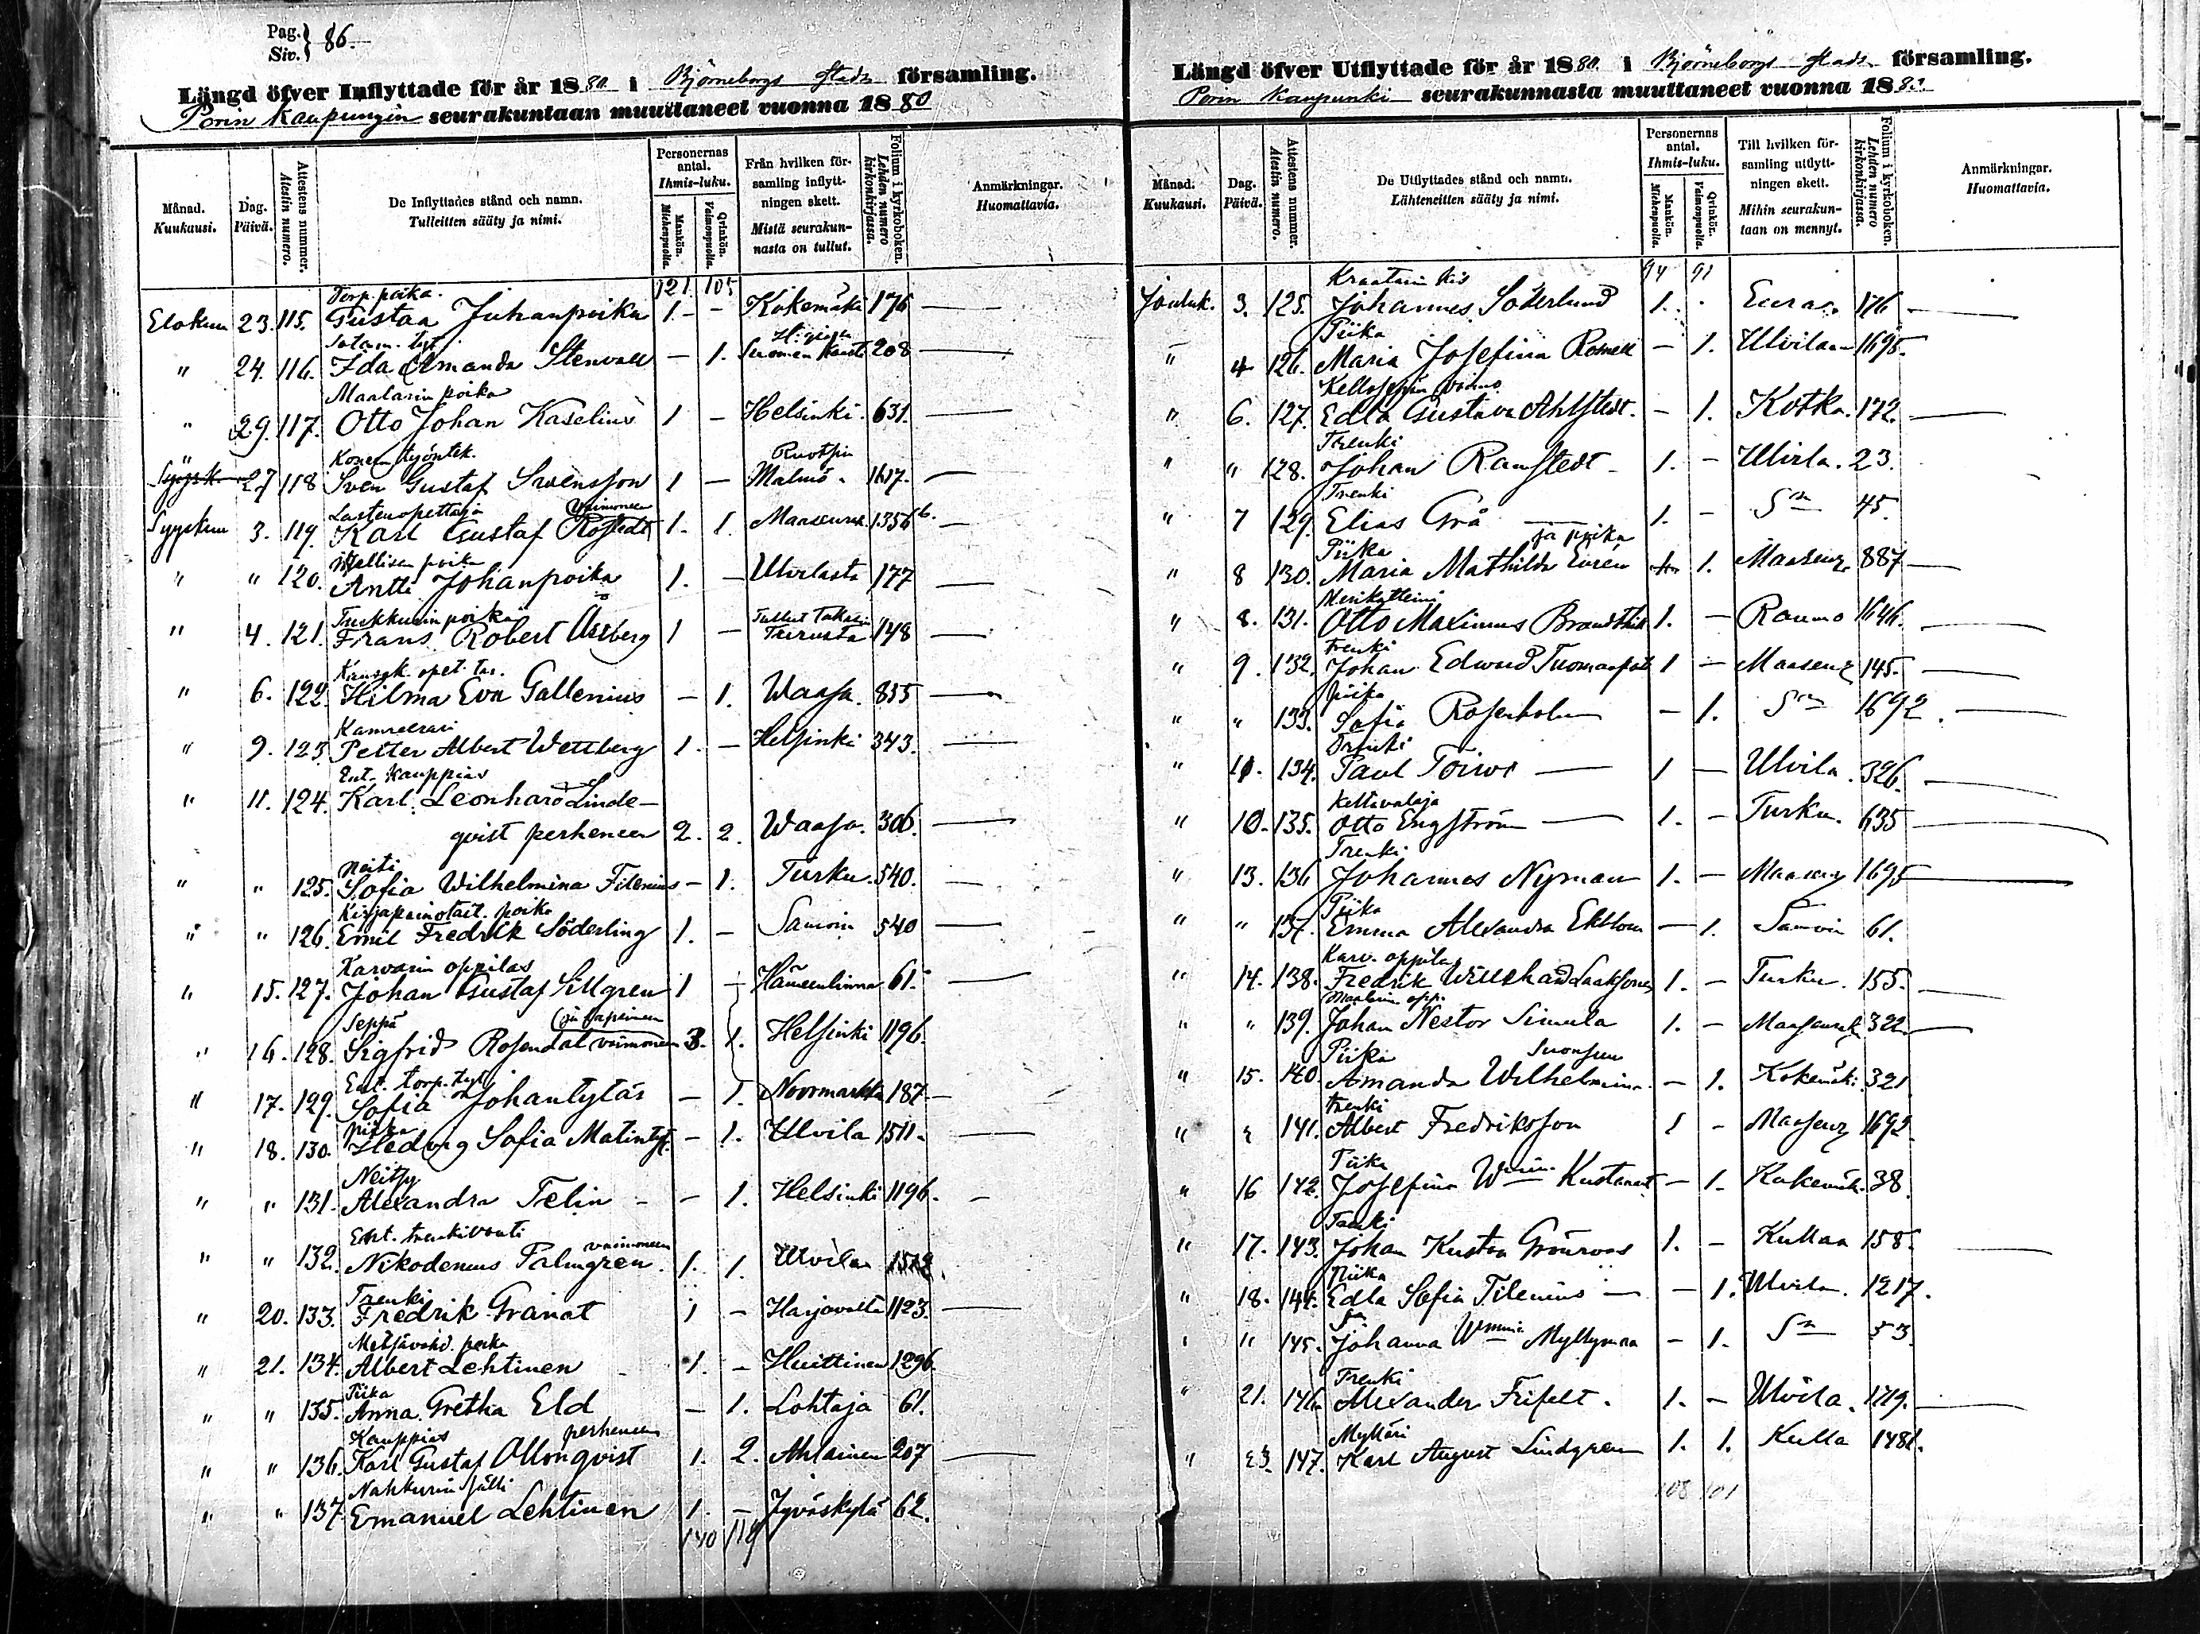 Pag. Siv. } 86.
Längd öfver Inflyttade för år 1880 i Björneborgs stads församling.
Porin Kaupungin seurakuntaan muuttaneet vuonna 1880
Månad. Kuukausi.
Dag. Päivä.
Attestens nummer. Atestin numero.
De Inflyttades stånd och namn. Tulleitten sääty ja nimi.
Personernas antal. Ihmis-luku.
Mankön. Miehenpuolia.
Qvinkön. Vaimonpuolia.
Från hvilken församling inflyttningen skett. Mistä seurakunnasta on tullut.
Folium i kyrkoboken. Lehden numero kirkonkirjassa.
Anmärkningar. Huomattavia.
121. 105
Torp. poika.
Elokuu 23. 115. Gustaa Juhanpoika 1. – Kokemäki 176
" 24. 116. Ida Amanda Stenvall – 1. Suomen kaarti 208
Maalarin poika
" 29. 117. Otto Johan Kaselius 1 – Helsinki. 631.
Koneen työntek. Ruotsin
Syysk. 27 118 Sven Gustaf Svensson 1 – Malmö. 1617.
Lastenopettaja vaimoneen
Syyskuu 3. 119. Karl Gustaf Rostedt 1. 1. Maaseurak. 1356 b.
Itsellisen poika
" " 120. Antti Johanpoika 1. – Ulvilasta 177
Turkkurin poika Tullut takasin
" 4. 121. Frans Robert Åsberg 1 – Turusta 148
Kansk. opet. tar.
" 6. 122. Hilma Eva Gallenius – 1. Waasa. 835
Kamreerari
" 9. 123. Petter Albert Wettberg 1. – Helsinki 343.
Ent. Kauppias
" 11. 124. Karl Leonhard Linde-
qvist perheneen 2. 2. Waasa. 306.
Neiti
" " 125. Sofia Wilhelmina Filenius – 1. Turku. 540.
Kirjapainotait. poika
" " 126. Emil Fredrik Söderling 1. – Samoin 540
Karvarin oppilas
" 15. 127. Johan Gustaf Sillgren 1 – Hämeenlinna 61.
Seppä ja lapsineen
" 16. 128. Sigfrid Rosendal vaimoneen 3. 1. Helsinki 1196.
Ent. torp. tyt
" 17. 129. Sofia Johantytär – 1. Noormarkku 187.
piika
" 18. 130. Hedvig Sofia Matintyt. – 1. Ulvila 1511.
Neitsy
" " 131. Alexandra Telin – 1. Helsinki 1196.
Ent. trenkivouti vaimoneen
" " 132. Nikodemus Palmgren. 1. 1. Ulvila 1512.
Trenki
" 20. 133. Fredrik Granat 1 – Harjavalta 1123.
Metsävahd. poika
" 21. 134. Albert Lehtinen 1. – Huittinen 1296.
Piika
" " 135. Anna Gretha Eld – 1. Lohtaja 61.
Kauppias perheneen
" " 136. Karl Gustaf Ollonqvist 1. 2. Ahlainen 207
Nahkurin sälli
" " 137. Emanuel Lehtinen 1. – Jyväskylä 62.
140 119
Längd öfver Utflyttade för år 1880. i Björneborgs stads församling.
Porin Kaupunki seurakunnasta muuttaneet vuonna 1880.
Månad. Kuukausi.
Dag. Päivä.
Attestens nummer. Atestin numero.
De Utflyttades stånd och namn. Lähteneitten sääty ja nimi.
Personernas antal. Ihmis-luku.
Mankön. Miehenpuolia.
Qvinkön. Vaimonpuolia.
Till hvilken församling utflyttningen skett. Mihin seurakuntaan on mennyt.
Folium i kyrkoboken. Lehden numero kirkonkirjassa.
Anmärkningar. Huomattavia.
94 91
Kraatarin kis
Jouluk. 3. 125. Johannes Söderlund 1. Eura. 176
Piika
" 4 126. Maria Josefina – 1. Ulvilaan 1695.
Kellosepän vaimo
" 6. 127. Edla Gustava Ahlstedt. – 1. Kotka. 172.
Trenki
" " 128. Johan Ramstedt 1. – Ulvila. 23.
Trenki
" 7 129. Elias Grå 1. – S:n 45.
Piika ja poika
" 8 130. Maria Mathilda Eurén 1. Maaseur. 887
Merikytteini
" 8. 131. Otto Maximus 1. – Raumo 1646.
Trenki
" 9. 132. Johan Edvard Tuomaspoi 1 – Maaseur 145.
piika
" " 133. Sofia Rosenholm – 1. S:n 1692.
Trenki
" 10. 134. Paul Toivo 1 – Ulvila. 326.
Keltavalaja
" 10. 135. Otto Engström 1. – Turku. 635
Trenki.
" 13. 136 Johannes Nyman 1. – Maaseur 1695
Piika
" " 137. Emma Alexandra Ekblom – 1. Samoin 61.
Karv. oppilas
" 14. 138. Fredrik Willehard Laaksonen 1. – Turku. 155.
Maalarin opp.
" " 139. Johan Nestor Simula 1. – Maaseurak 322.
Piika Suonsuu
" 15. 140. Amanda Wilhelmina – 1. Kokemäki 321
trenki
" " 141. Albert Fredriksson 1 – Maaseur 1692.
Piika
" 16 142. Josefina W:mina Kustaant. – 1. Kokemäk. 38.
Trenki
" 17. 143. Johan Kustaa Grönroos 1. – Kullaa 158.
Piika
" 18. 144. Edla Sofia Filenius – 1. Ulvila. 1217.
S:n
" " 145. Johanna W:mina Myllymaa – 1. S:n 53.
Trenki
" 21. 146. Alexander Frifelt. 1. – Ulvila. 1719.
Mylläri
" 23. 147. Karl August Lindgren 1. 1. Kulla 1481.
108 101